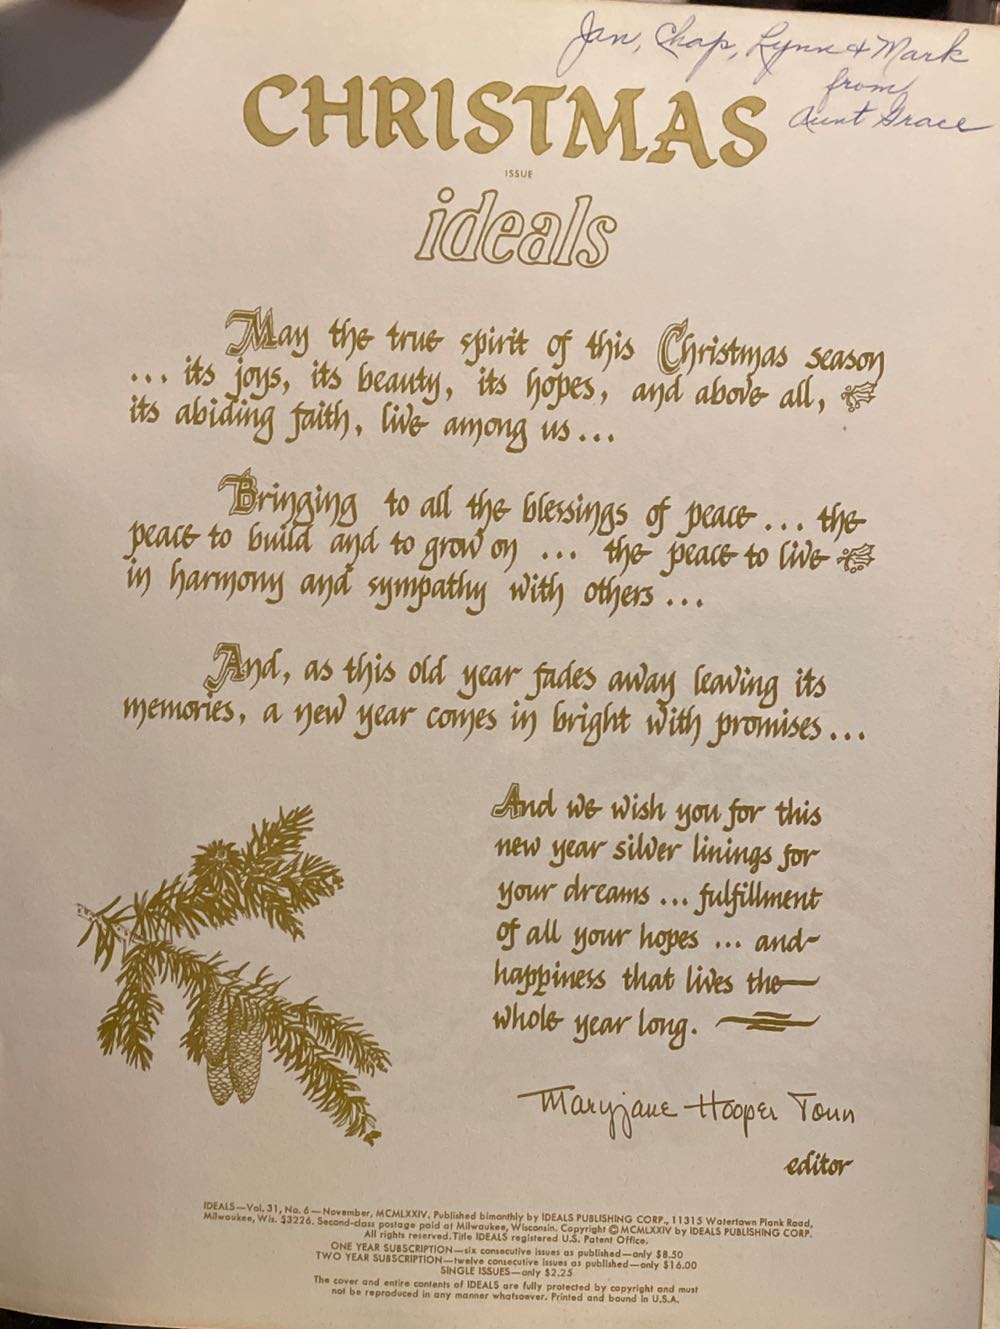 Jan, Chap, Lynn & Mark
from
Aunt Grace
CHRISTMAS
ISSUE
ideals
May the true spirit of this Christmas season
... its joys, its beauty, its hopes, and above all,
its abiding faith, live among us...
Bringing to all the blessings of peace... the
peace to build and to grow on ... the peace to live
in harmony and sympathy with others...
And, as this old year fades away leaving its
memories, a new year comes in bright with promises...
And we wish you for this
new year silver linings for
your dreams ... fulfillment
of all your hopes ... and
happiness that lives the
whole year long.
Maryjane Hooper Tonn
editor
IDEALS—Vol. 31, No. 6—November, MCMLXXIV. Published bimonthly by IDEALS PUBLISHING CORP., 11315 Watertown Plank Road,
Milwaukee, Wis. 53226. Second-class postage paid at Milwaukee, Wisconsin. Copyright © MCMLXXIV by IDEALS PUBLISHING CORP.
All rights reserved. Title IDEALS registered U.S. Patent Office.
ONE YEAR SUBSCRIPTION—six consecutive issues as published—only $8.50
TWO YEAR SUBSCRIPTION—twelve consecutive issues as published—only $16.00
SINGLE ISSUES—only $2.25
The cover and entire contents of IDEALS are fully protected by copyright and must
not be reproduced in any manner whatsoever. Printed and bound in U.S.A.